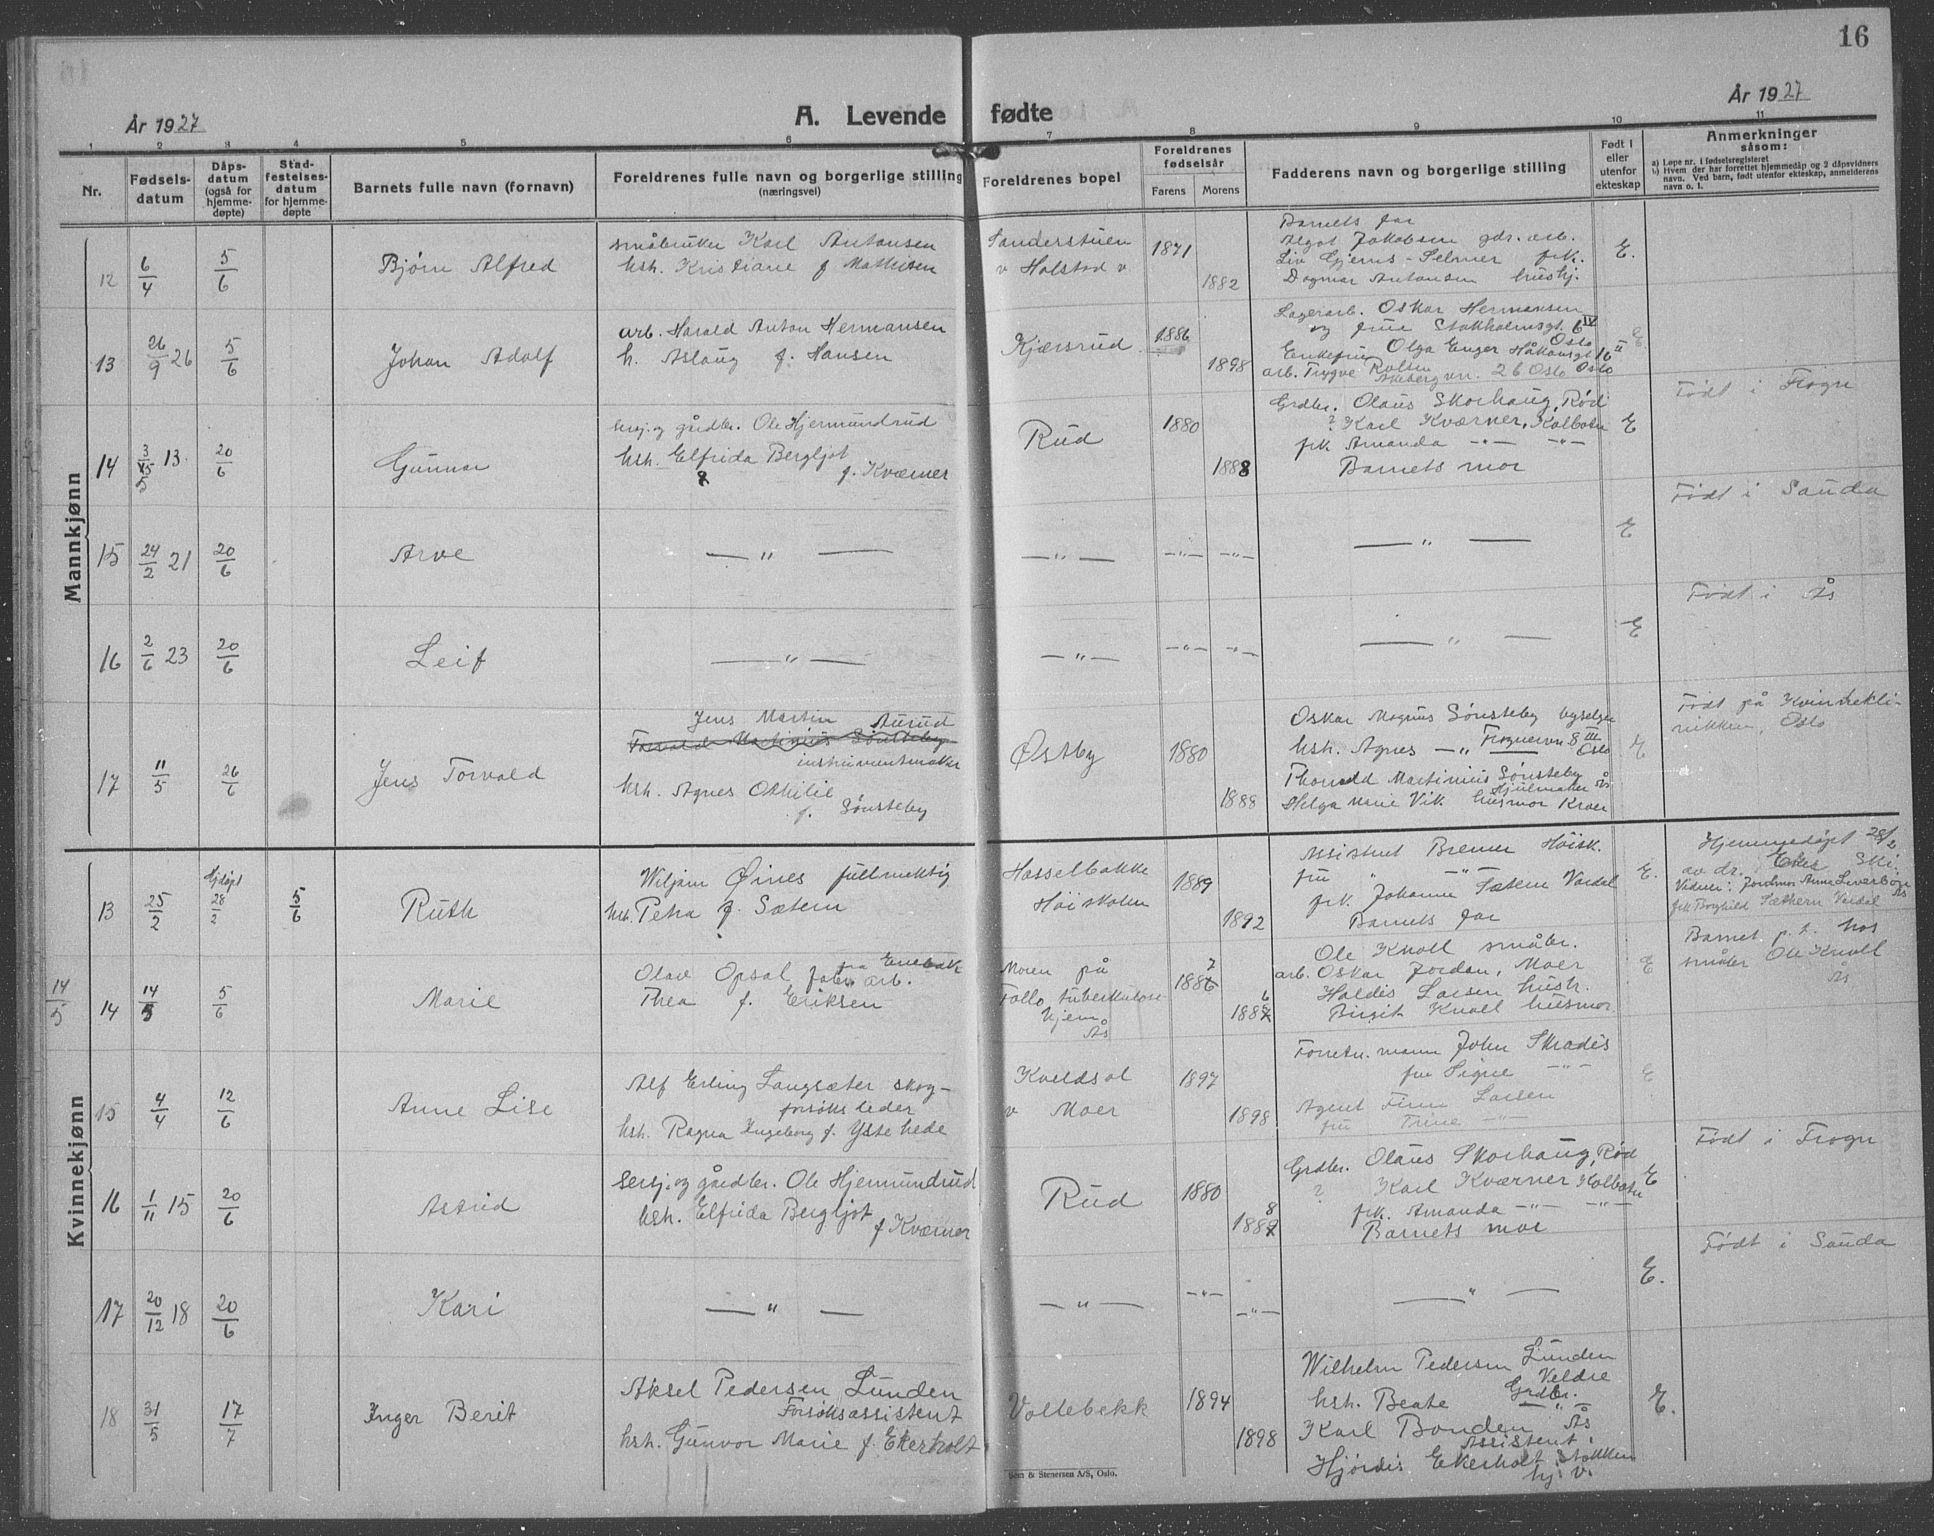 16
År 1927
A. Levende fødte
År 1927
1 2 3 4 5 6 7 8 9 10 11
Nr.
Fødsels-
datum
Dåps-
datum
(også for
hjemme-
døpte)
Stad-
festelses-
datum
for hjemme-
døpte
Barnets fulle navn (fornavn)
Foreldrenes fulle navn og borgerlige stilling
(næringsvei)
Foreldrenes bopel
Foreldrenes
fødselsår
Farens Morens
Fadderens navn og borgerlige stilling
Født i
eller
utenfor
ekteskap
Anmerkninger
såsom:
a) Løpe nr. i fødselsregisteret
b) Hvem der har forrettet hjemmedåp og 2 dåpsvidners
navn. Ved barn, født utenfor ekteskap, anmelderens
navn o. l.
Mannkjønn
12
6/4
5/6
Bjørn Alfred
småbruker Karl Antonsen
hsh. Kristiane f Mathisen
Sanderstuen
v Holstad v
1871
1882
Barnets far
Algot Jakobsen gdr. arb.
Liv Gjems-Selmer frk.
Dagmar Antonsen hushj.
E.
13
26/9 26
5/6
Johan Adolf
arb. Harald Anton Hermansen
h. Aslaug f. Hansen
Kjærsrud
1886
1898
Lagerarb. Oskar Hermansen
og frue Stokholmsgt. 6 IV
Oslo
Enkefru Olga Enger Håkonsgt 16 II
Oslo
arb. Trygve 26 Oslo
E
Født i Frogn
14
3/5 13.
20/6
Gunnar
sersj. og gårdbr. Ole Hjermundrud
hsh. Elfrida Bergljot
f. Kværner
Rud
1880
1888
Grdbr. Olaus Skorhaug, Rød
? Karl Kværner, Kolbotn
frk. Amanda -"- -"-
Barnets mor
E
Født i Sauda
15
24/2 21
20/6
Arve
— " —
— " —
-"- -"-
— " —
E
Født i Ås
16
2/6 23
20/6
Leif
— " —
— " —
-"- -"-
— " —
E
17
11/5
26/6
Jens Torvald
Jens Martin Aurud
Torvald Martinius Sønsteby
instrumentmaker
hsh. Agnes Othilie
f. Sønsteby
Østby
1880
1888
Oskar Magnus Sønsteby
hsh. Agnes -"- Frognervn 8 III
Oslo
Thorvald Martinius Sønsteby
Hjulmaker Ås
Helga Marie Vik husmor Kroer
E
Født på Kvinnekli-
nikken, Oslo
Kvinnekjønn
13
25/2
Hjdøpt
28/2
5/6
Ruth
Wiljam Øines fullmektig
hsh. Petra f. Sætern
Hasselbakke
Høiskolen
1889
1892
Assistent Bremer Høisk.
fru " -"-
frk. Johanne Sætern Værdal
Barnets far
E.
Hjemmedøpt 28/2
av dr. Eker Ski.
Vidner: Jordmor Anna
Ås
frk Borghild Sæthern Værdal
14/5
14
14/5
5/6
Marie
Olav Opsal fabr. arb.
fra Enebak
Thea f. Eriksen
Moren på
Follo tuberkulose
hjem
Ås
1886 7
1887 6
Ole Knoll småbr.
arb. Oskar Jordan, Moer
Haldis Larsen hustr.
Birgit Knoll husmor
E
Barnet p. t. hos
småbr Ole Knoll
Ås
15
4/4
12/6
Anne Lise
Alf Erling Langsæter skog-
forsøksleder
hsh. Ragna Ingeborg f. Ystehede
Kveldsol
v Moer
1897
1898
Forretn. mann John Skradis
fru Signe -"-
Agent Finn Larsen
fru Trine -"-
E
Født i Frogn
16
1/11 15
20/6
Astrid
Sersj. og gårdbr. Ole Hjermundrud
hsh. Elfrida Bergljot
f Kværner
Rud
1880
1887 8
Grdbr. Olaus Skorhaug, Rød
? Karl Kværner Kolbotn
frk. Amanda -"- -"-
Barnets mor
E
Født i Sauda
17
20/12 18
20/6
Kari
— " —
— " —
-"- -"-
— " —
E.
18
31/5
17/7
Inger Berit
Aksel Pedersen Lunden
Forsøksassistent
hsh. Gunvor Marie f. Ekerholt
Vollebekk
1894
1898
Wilhelm Pedersen Lunden
Veldre
Grdbr.
hsh. Beate -"-
Karl Bonden Ås
Assistent
Hjørdis Ekerholt, Stokken
hj. v.
E.
Sem & Stenersen A/S, Oslo.